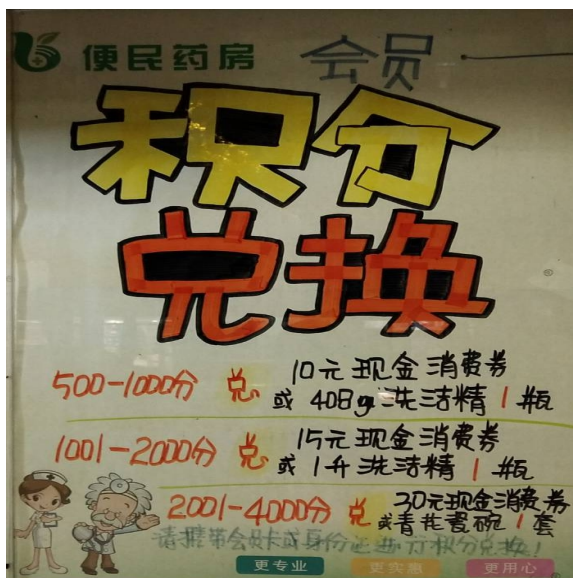 便民药房 会员
积分
兑换
500-1000分 兑 10元现金消费券
或 408g 洗洁精 1 瓶
1001-2000分 兑 15元现金消费券
或 1升洗洁精 1 瓶
2001-4000分 兑 30元现金消费券
或青花瓷碗 1 套
请携带会员卡或身份证进行积分兑换!
更专业 更实惠 更用心